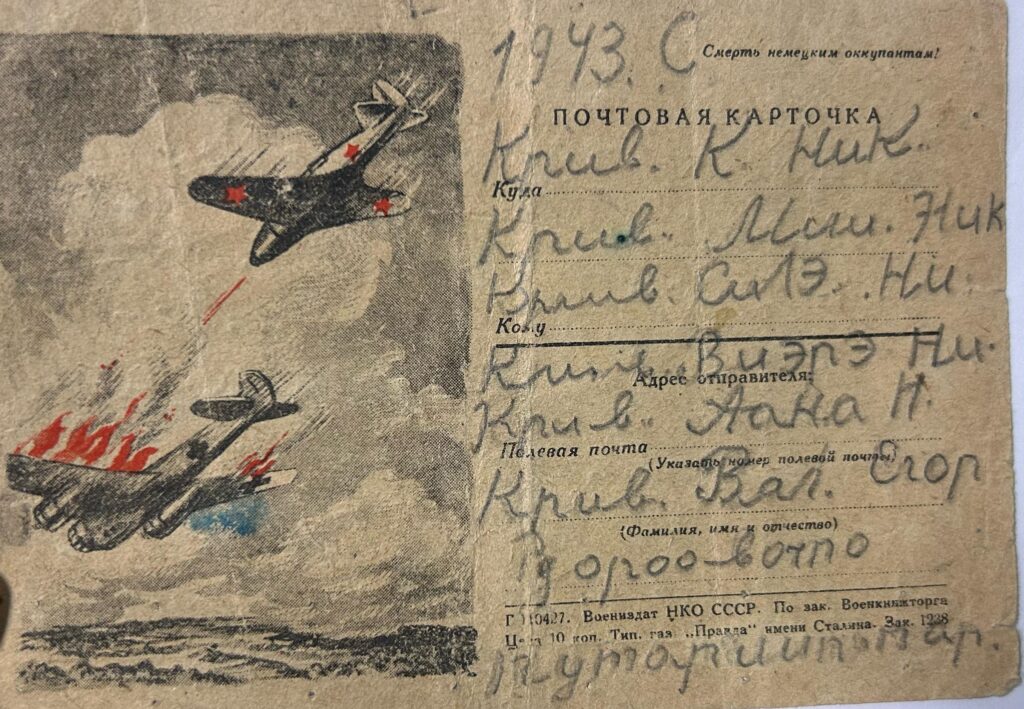 1943. С
Смерть немецким оккупантам!
ПОЧТОВАЯ КАРТОЧКА
Крив. К. Ник.
Куда
Крив. Мии. Ник
Крив. СиЛЭ. Ни.
Кому
Крив. Виэрэ Ни.
Адрес отправителя:
Крив. Аана Н.
Полевая почта
(Указать номер полевой почты)
Крив. Вал. Егор
(Фамилия, имя и отчество)
Г 10427. Воениздат НКО СССР. По зак. Военкнижторга
Цена 10 коп. Тип. газ. „Правда" имени Сталина. Зак. 1228